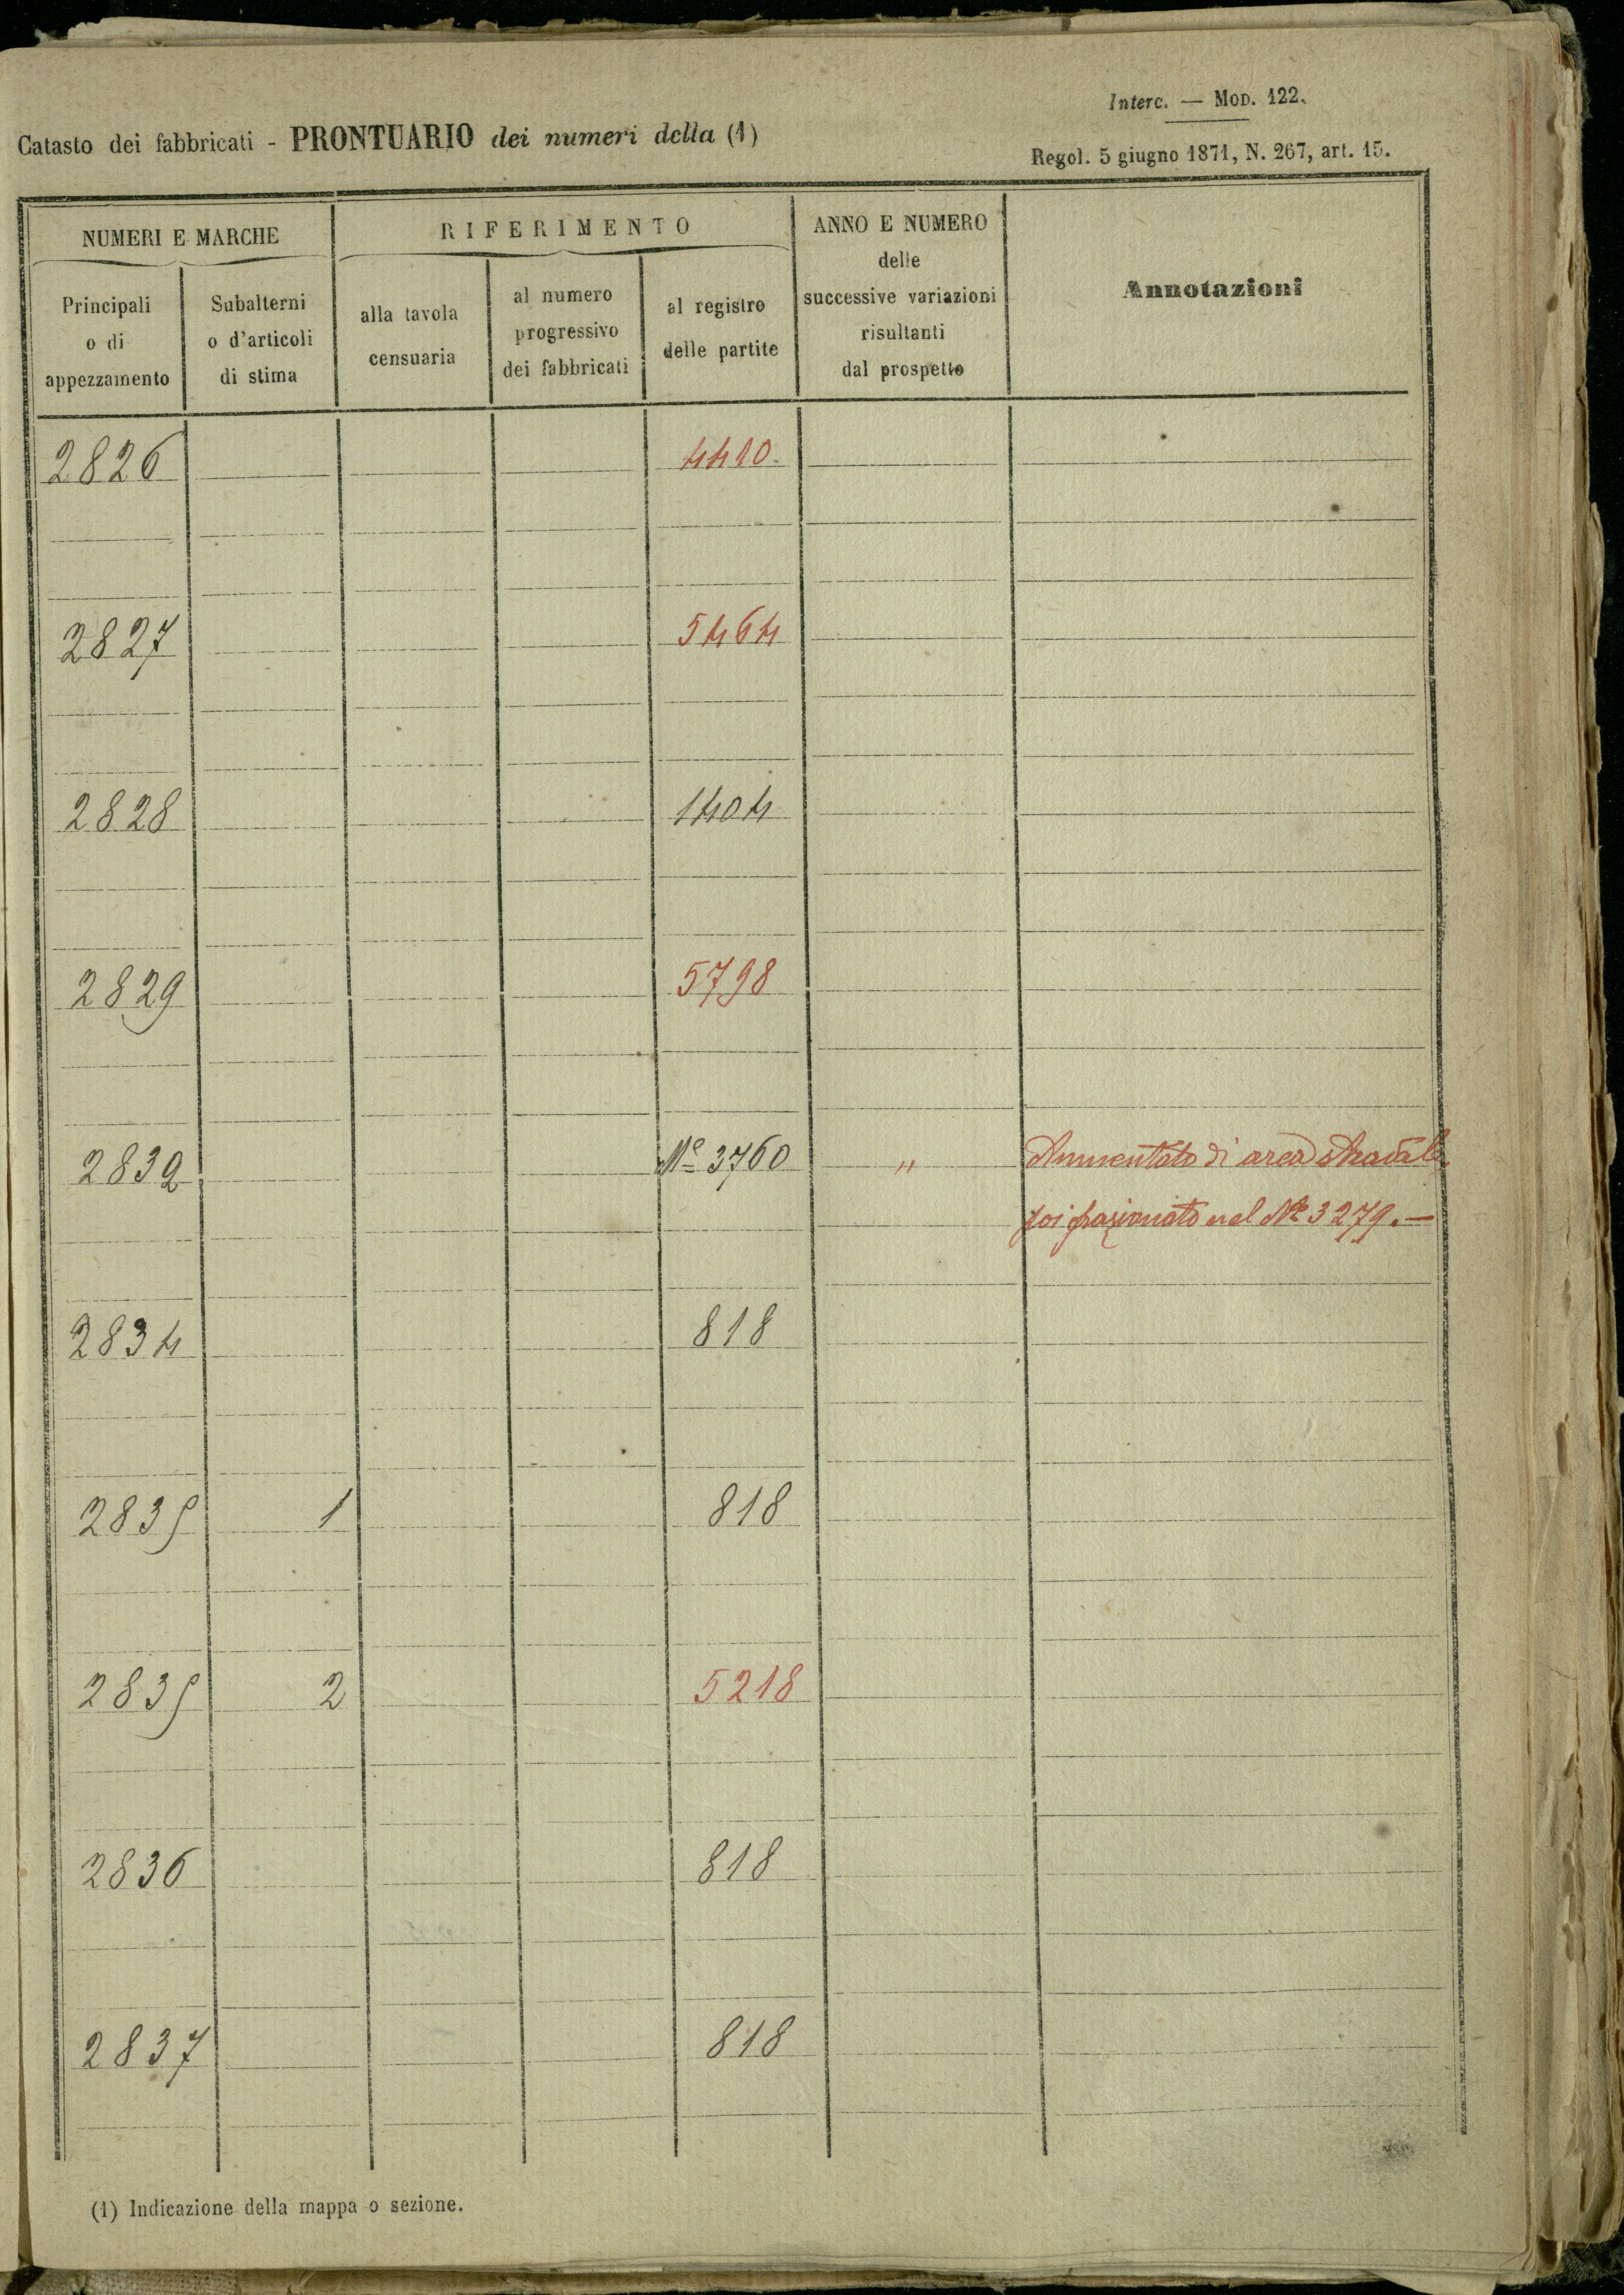 Interc. — Mod. 122.
Catasto dei fabbricati - PRONTUARIO dei numeri della (1)
Regol. 5 giugno 1871, N. 267, art. 15.
NUMERI E MARCHE
RIFERIMENTO
ANNO E NUMERO
delle
successive variazioni
risultanti
dal prospetto
Annotazioni
Principali
o di
appezzamento
Subalterni
o d'articoli
di stima
alla tavola
censuaria
al numero
progressivo
dei fabbricati
al registro
delle partite
2826 4410.
2827 5464
2828 1404
2829 5798
2832 Nº 3760 " Aumentato di area stradale
poi frazionato nel Nº 3279.—
2834 818
2835 1 818
2835 2 5218
2836 818
2837 818
(1) Indicazione della mappa o sezione.